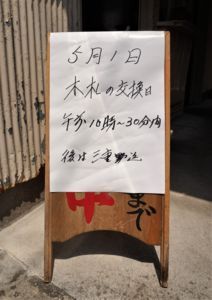 5月1日
木札の交換日
午前10時〜30分内
後は三重
まで